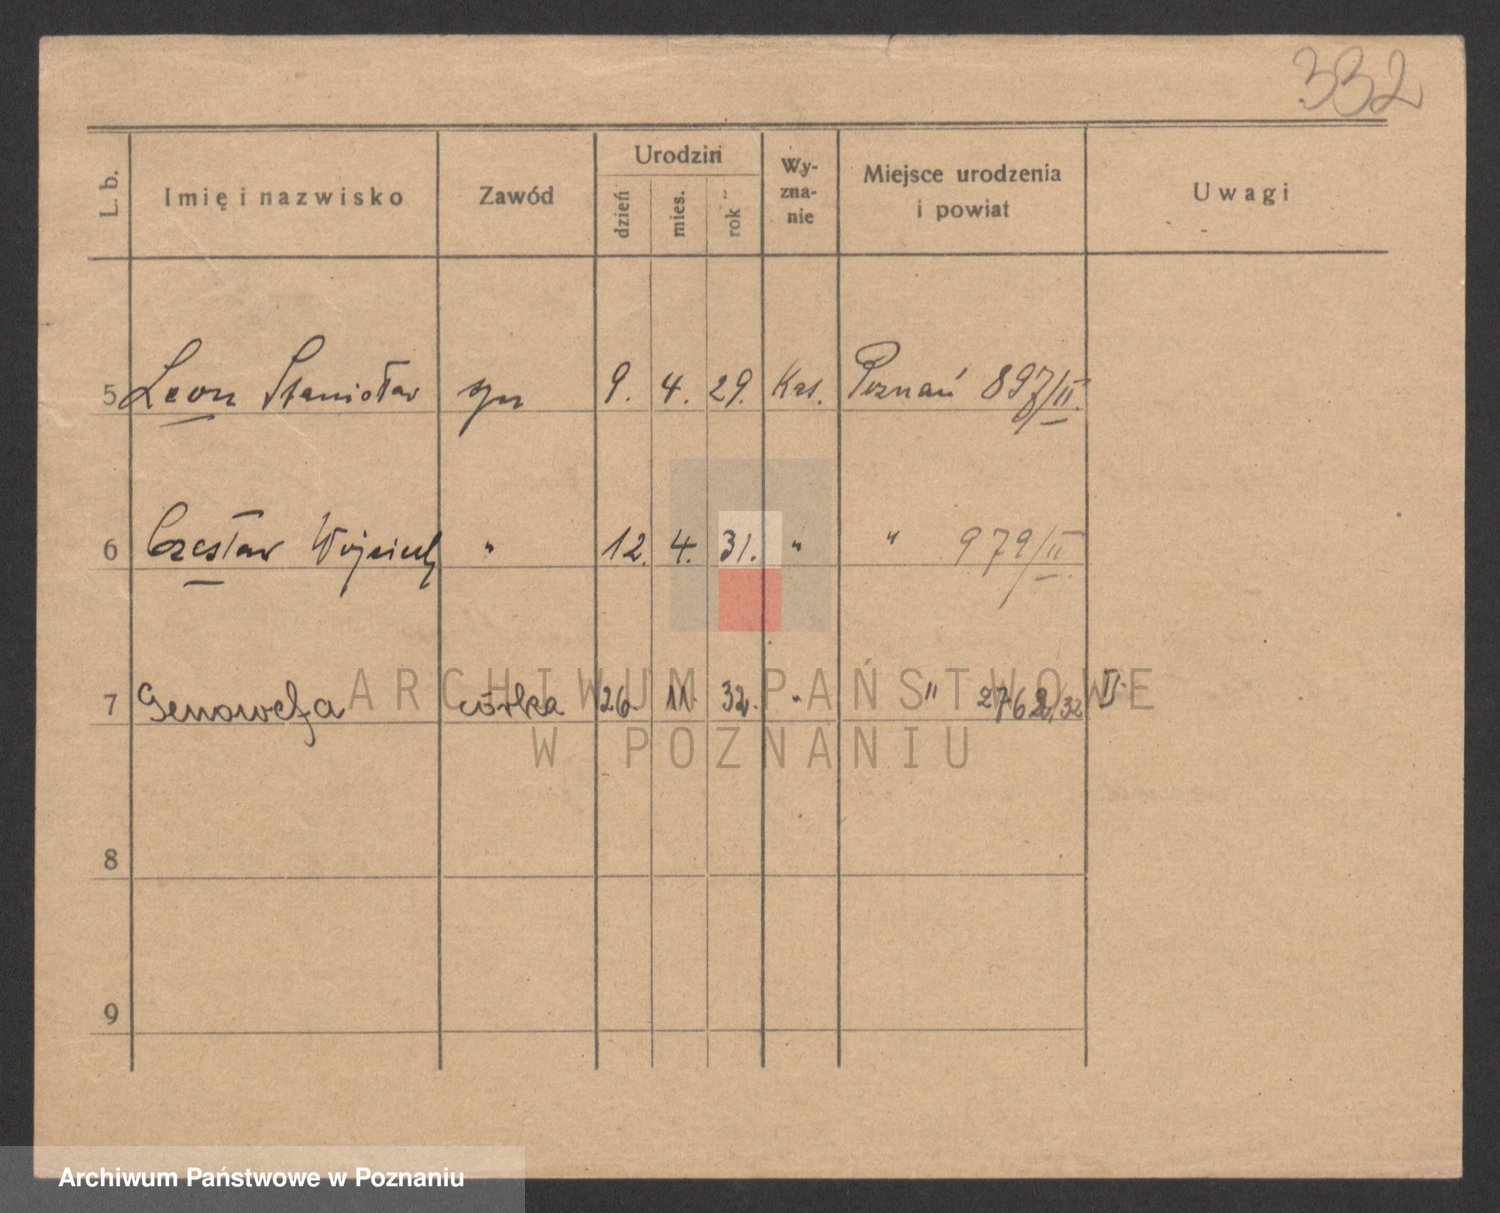 332
L. b. Imię i nazwisko Zawód Urodzin dzień mies. rok Wy-zna-nie Miejsce urodzenia i powiat Uwagi
5 Leon Stanisław syn 9. 4. 29. Kat. Poznań 897/II.
6 Czesław Wojciech " 12. 4. 31. " " 979/II.
7 Genowefa córka 26. 11. 32. " " 2762/32 II.
8
9
ARCHIWUM PAŃSTWOWE
W POZNANIU
Archiwum Państwowe w Poznaniu